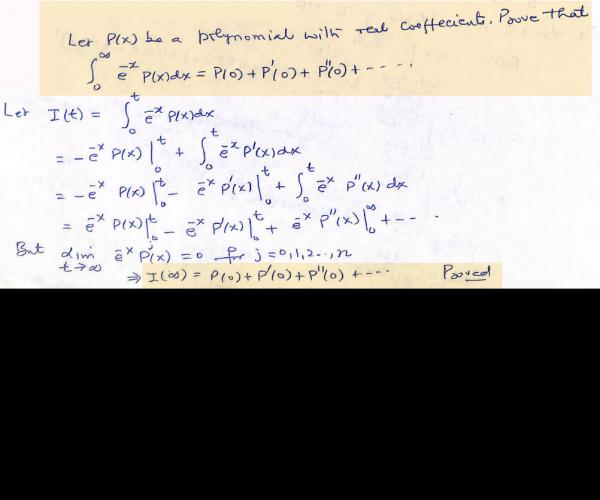 Let P(x) be a polynomial with real coeffecients. Prove that
∫₀^∞ e^{-x} P(x)dx = P(0) + P'(0) + P''(0) + - - - .
Let I(t) = ∫₀^t e^{-x} P(x)dx
= -e^{-x} P(x)|₀^t + ∫₀^t e^{-x} P'(x)dx
= -e^{-x} P(x)|₀^t - e^{-x} P'(x)|₀^t + ∫₀^t e^{-x} P''(x) dx
= e^{-x} P(x)|₀^t - e^{-x} P'(x)|₀^t + e^{-x} P''(x)|₀^∞ + - - .
But lim_{t→∞} e^{-x} P^j(x) = 0 for j = 0,1,2..,n
⇒ I(∞) = P(0) + P'(0) + P''(0) + - - . Proved